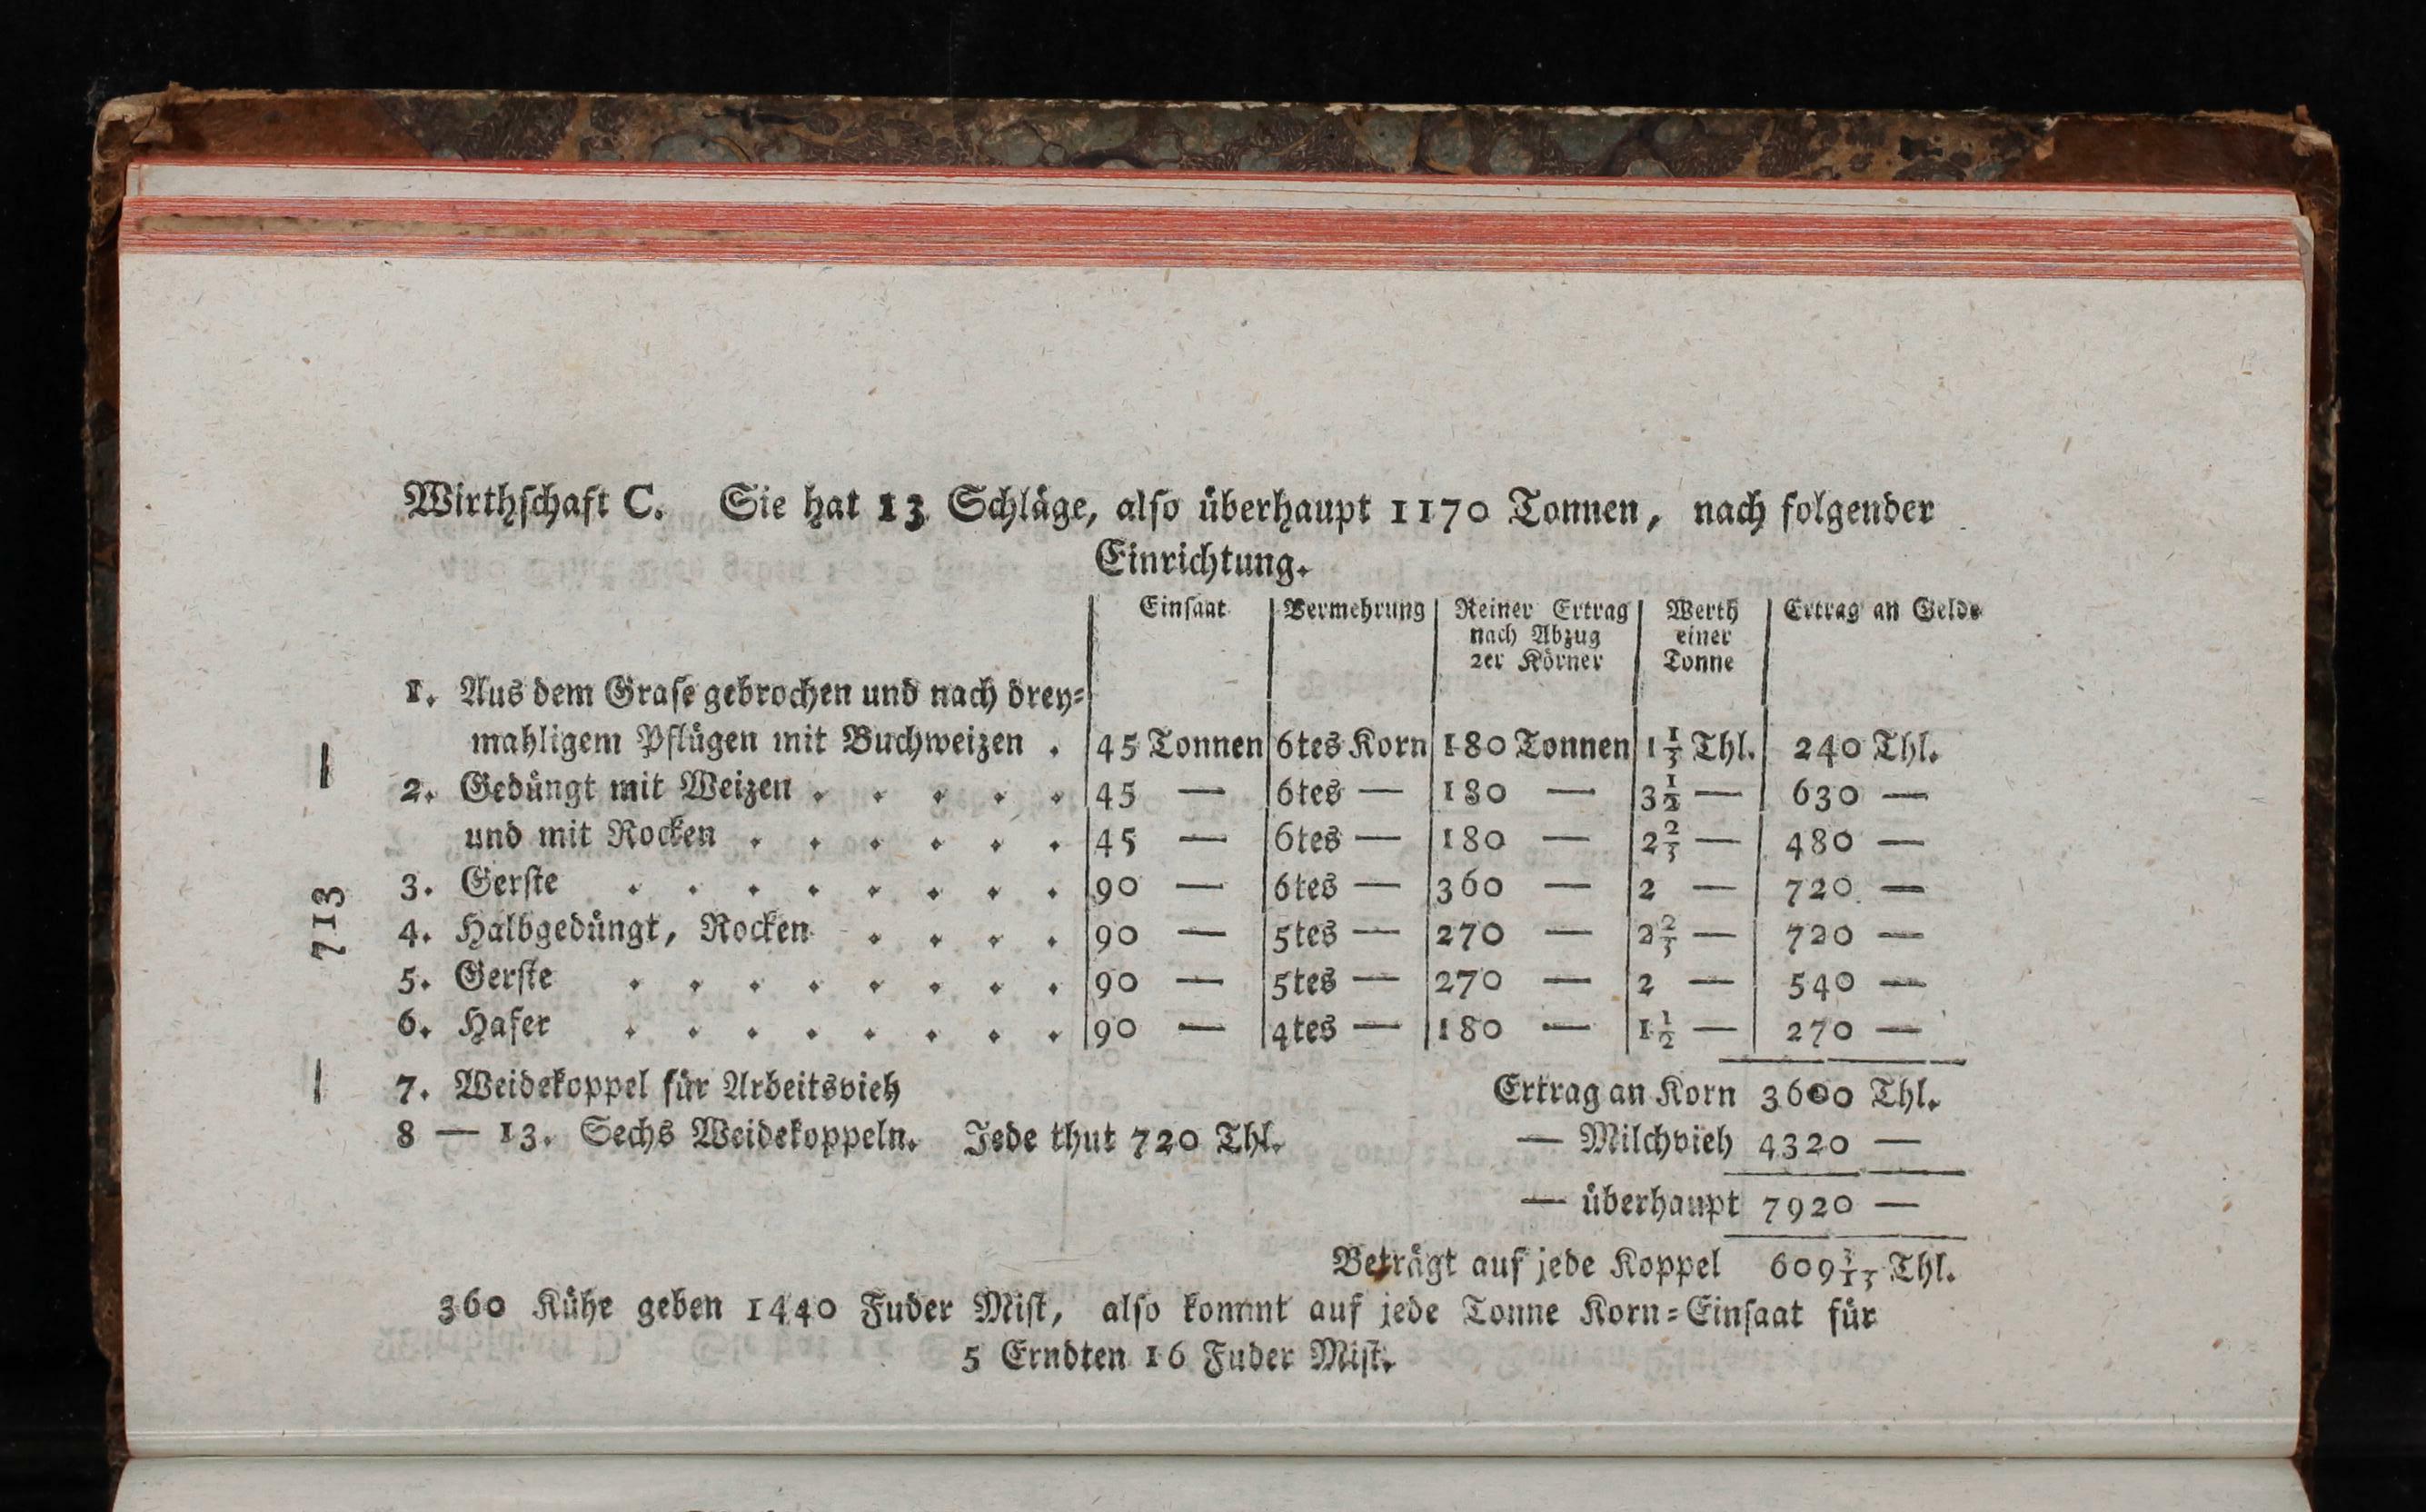 Wirthschaft C. Sie hat 13 Schläge, also überhaupt 1170 Tonnen, nach folgender
Einrichtung.
Einsaat | Vermehrung | Reiner Ertrag nach Abzug 2er Körner | Werth einer Tonne | Ertrag an Gelde
1. Aus dem Grase gebrochen und nach drey-
mahligem Pflügen mit Buchweizen . | 45 Tonnen | 6tes Korn | 180 Tonnen | 1 1/3 Thl. | 240 Thl.
2. Gedüngt mit Weizen . . . . . | 45 — | 6tes — | 180 — | 3 1/2 — | 630 —
und mit Rocken . . . . . . | 45 — | 6tes — | 180 — | 2 2/3 — | 480 —
3. Gerste . . . . . . . . | 90 — | 6tes — | 360 — | 2 — | 720 —
4. Halbgedüngt, Rocken . . . . | 90 — | 5tes — | 270 — | 2 2/3 — | 720 —
5. Gerste . . . . . . . . | 90 — | 5tes — | 270 — | 2 — | 540 —
6. Hafer . . . . . . . . | 90 — | 4tes — | 180 — | 1 1/2 — | 270 —
7. Weidekoppel für Arbeitsvieh Ertrag an Korn 3600 Thl.
8 — 13. Sechs Weidekoppeln. Jede thut 720 Thl. — Milchvieh 4320 —
— überhaupt 7920 —
Beträgt auf jede Koppel 609 3/13 Thl.
360 Kühe geben 1440 Fuder Mist, also kommt auf jede Tonne Korn-Einsaat für
5 Erndten 16 Fuder Mist.
— 713 —